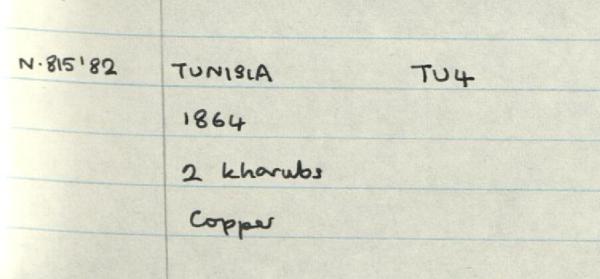 N.815'82 TUNISIA TU4
1864
2 kharubs
Copper